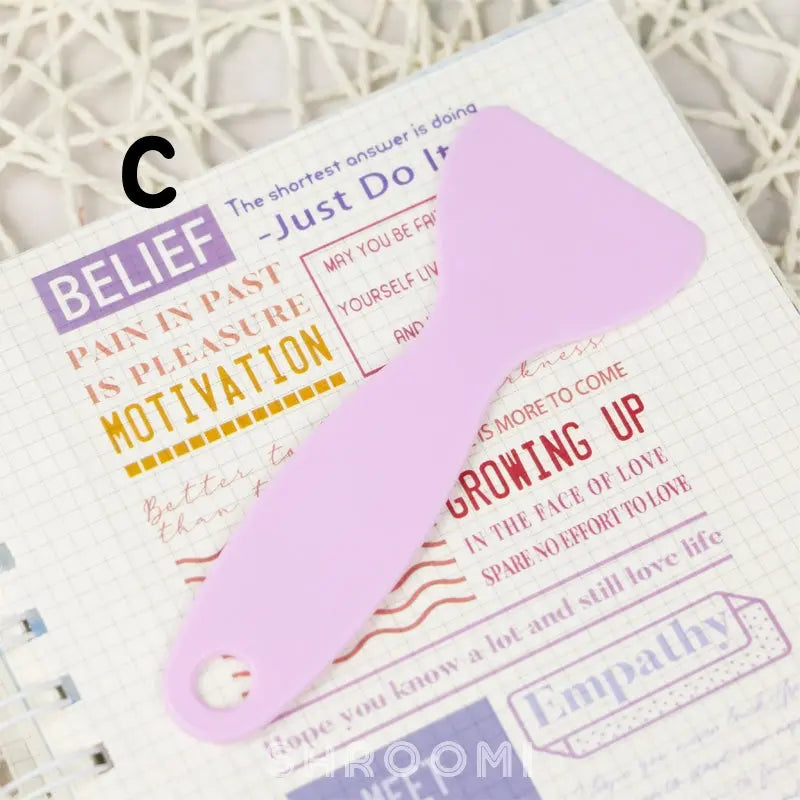 C
The shortest answer is doing
-Just Do It
BELIEF
MAY YOU BE
YOURSELF
AND
PAIN IN PAST
IS PLEASURE
MOTIVATION
IS MORE TO COME
GROWING UP
IN THE FACE OF LOVE
SPARE NO EFFORT TO LOVE
Better to
than
Hope you know a lot and still love life
Empathy
MEET
SHROOMI